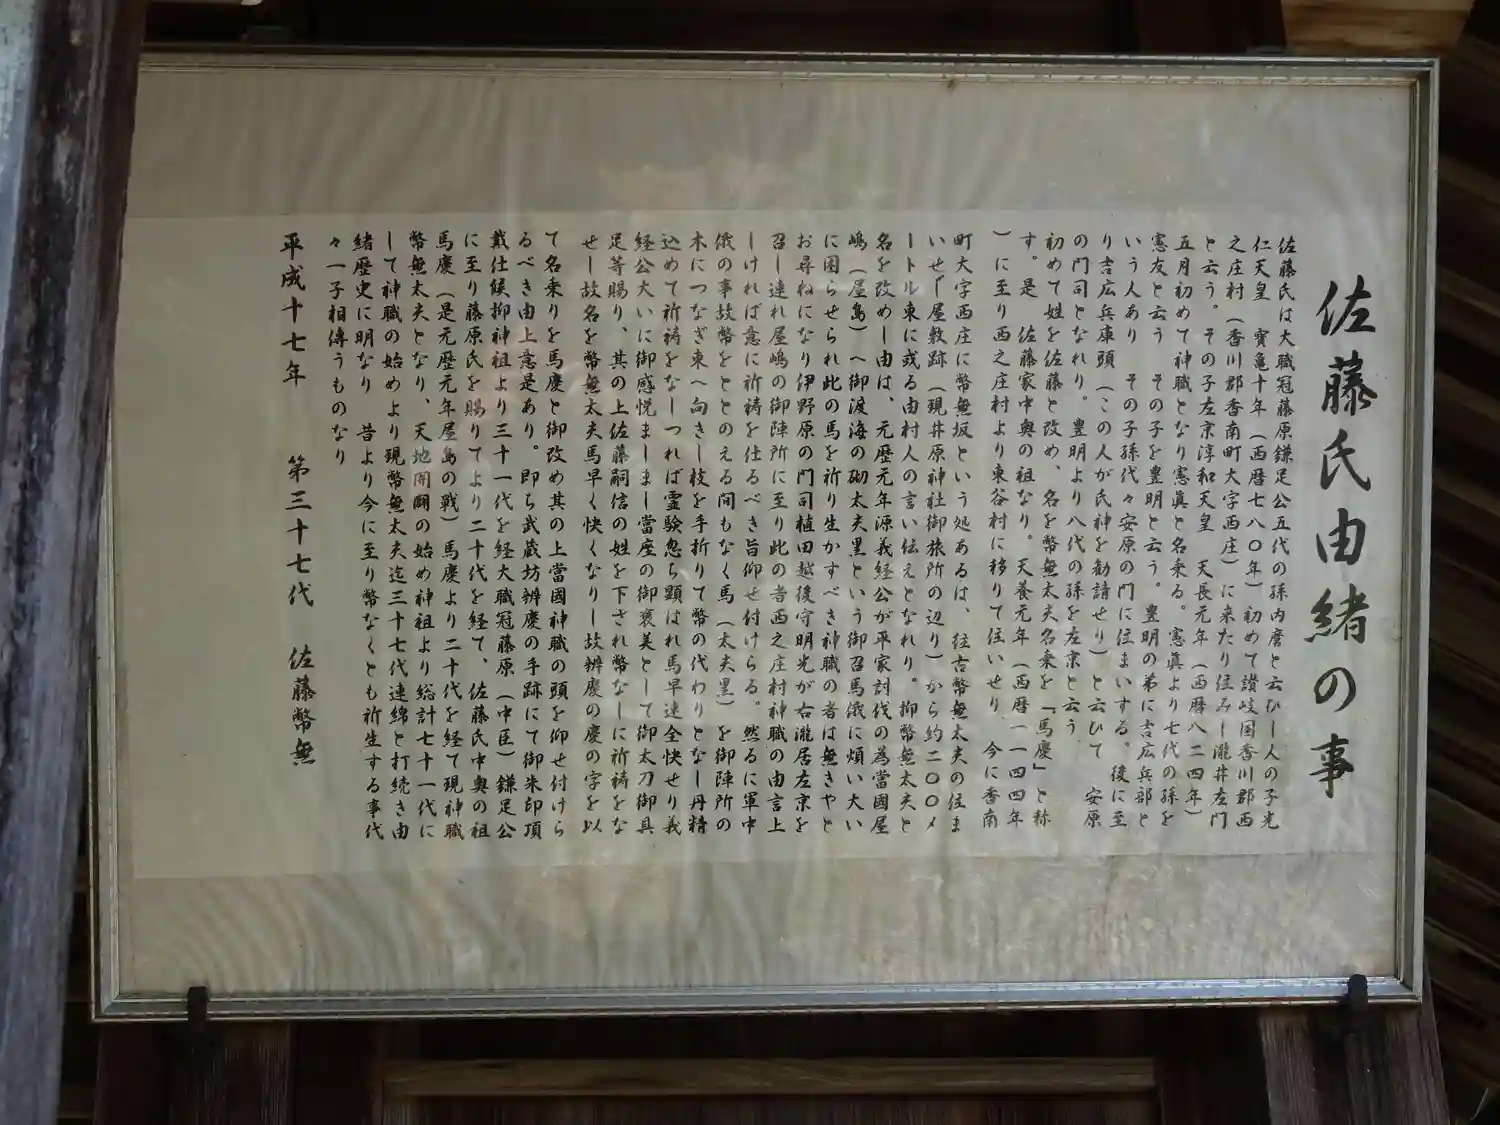 佐藤氏由緒の事
佐藤氏は大職冠藤原鎌足公五代の孫内麿と云ひし人の子光
仁天皇　寶亀十年（西暦七八〇年）初めて讃岐国香川郡西
之庄村（香川郡香南町大字西庄）に来たり住みし瀧井左門
と云う。その子左京淳和天皇　天長元年（西暦八二四年）
五月初めて神職となり憲眞と名乗る。憲眞より七代の孫を
憲友と云う　その子を豊明と云う。豊明の弟に吉広兵部と
いう人あり　その子孫代々安原の門に住まいする。後に至
り吉広兵庫頭（この人が氏神を勧請せり）と云ひて　安原
の門司となれり。豊明より八代の孫を左京と云う
初めて姓を佐藤と改め、名を幣無太夫名乗を「馬慶」と称
す。是　佐藤家中奥の祖なり。天養元年（西暦一一四四年
）に至り西之庄村より東谷村に移りて住いせり　今に香南
町大字西庄に幣無坂という処あるは、往古幣無太夫の住ま
いせし屋敷跡（現井原神社御旅所の辺り）から約二〇〇メ
ートル東に或る由村人の言い伝えとなれり。抑幣無太夫と
名を改めし由は、元歴元年源義経公が平家討伐の為當國屋
嶋（屋島）へ御渡海の砌太夫黒という御召馬俄に煩い大い
に困らせられ此の馬を祈り生かすべき神職の者は無きやと
お尋ねになり伊野原の門司植田越後守明光が右瀧居左京を
召し連れ屋嶋の御陣所に至り此の者西之庄村神職の由言上
しければ意に祈祷を仕るべき旨仰せ付けらる。然るに軍中
俄の事故幣をととのえる間もなく馬（太夫黒）を御陣所の
木につなぎ東へ向きし枝を手折りて幣の代わりとなし丹精
込めて祈祷をなしつれば霊験忽ち顕はれ馬早速全快せり義
経公大いに御感悦ましまし當座の御褒美として御太刀御具
足等賜り、其の上佐藤嗣信の姓を下され幣なしに祈祷をな
せし故名を幣無太夫馬早く快くなりし故辨慶の慶の字を以
て名乗りを馬慶と御改め其の上當國神職の頭を仰せ付けら
るべき由上意是あり。即ち武蔵坊辨慶の手跡にて御朱印頂
戴仕候抑神祖より三十一代を経大職冠藤原（中臣）鎌足公
に至り藤原氏を賜りてより二十代を経て、佐藤氏中奥の祖
馬慶（是元歴元年屋島の戦）馬慶より二十代を経て現神職
幣無太夫となり、天地開闢の始め神祖より総計七十一代に
して神職の始めより現幣無太夫迄三十七代連綿と打続き由
緒歴史に明なり　昔より今に至り幣なくとも祈生する事代
々一子相傳うものなり
平成十七年　第三十七代　佐藤幣無